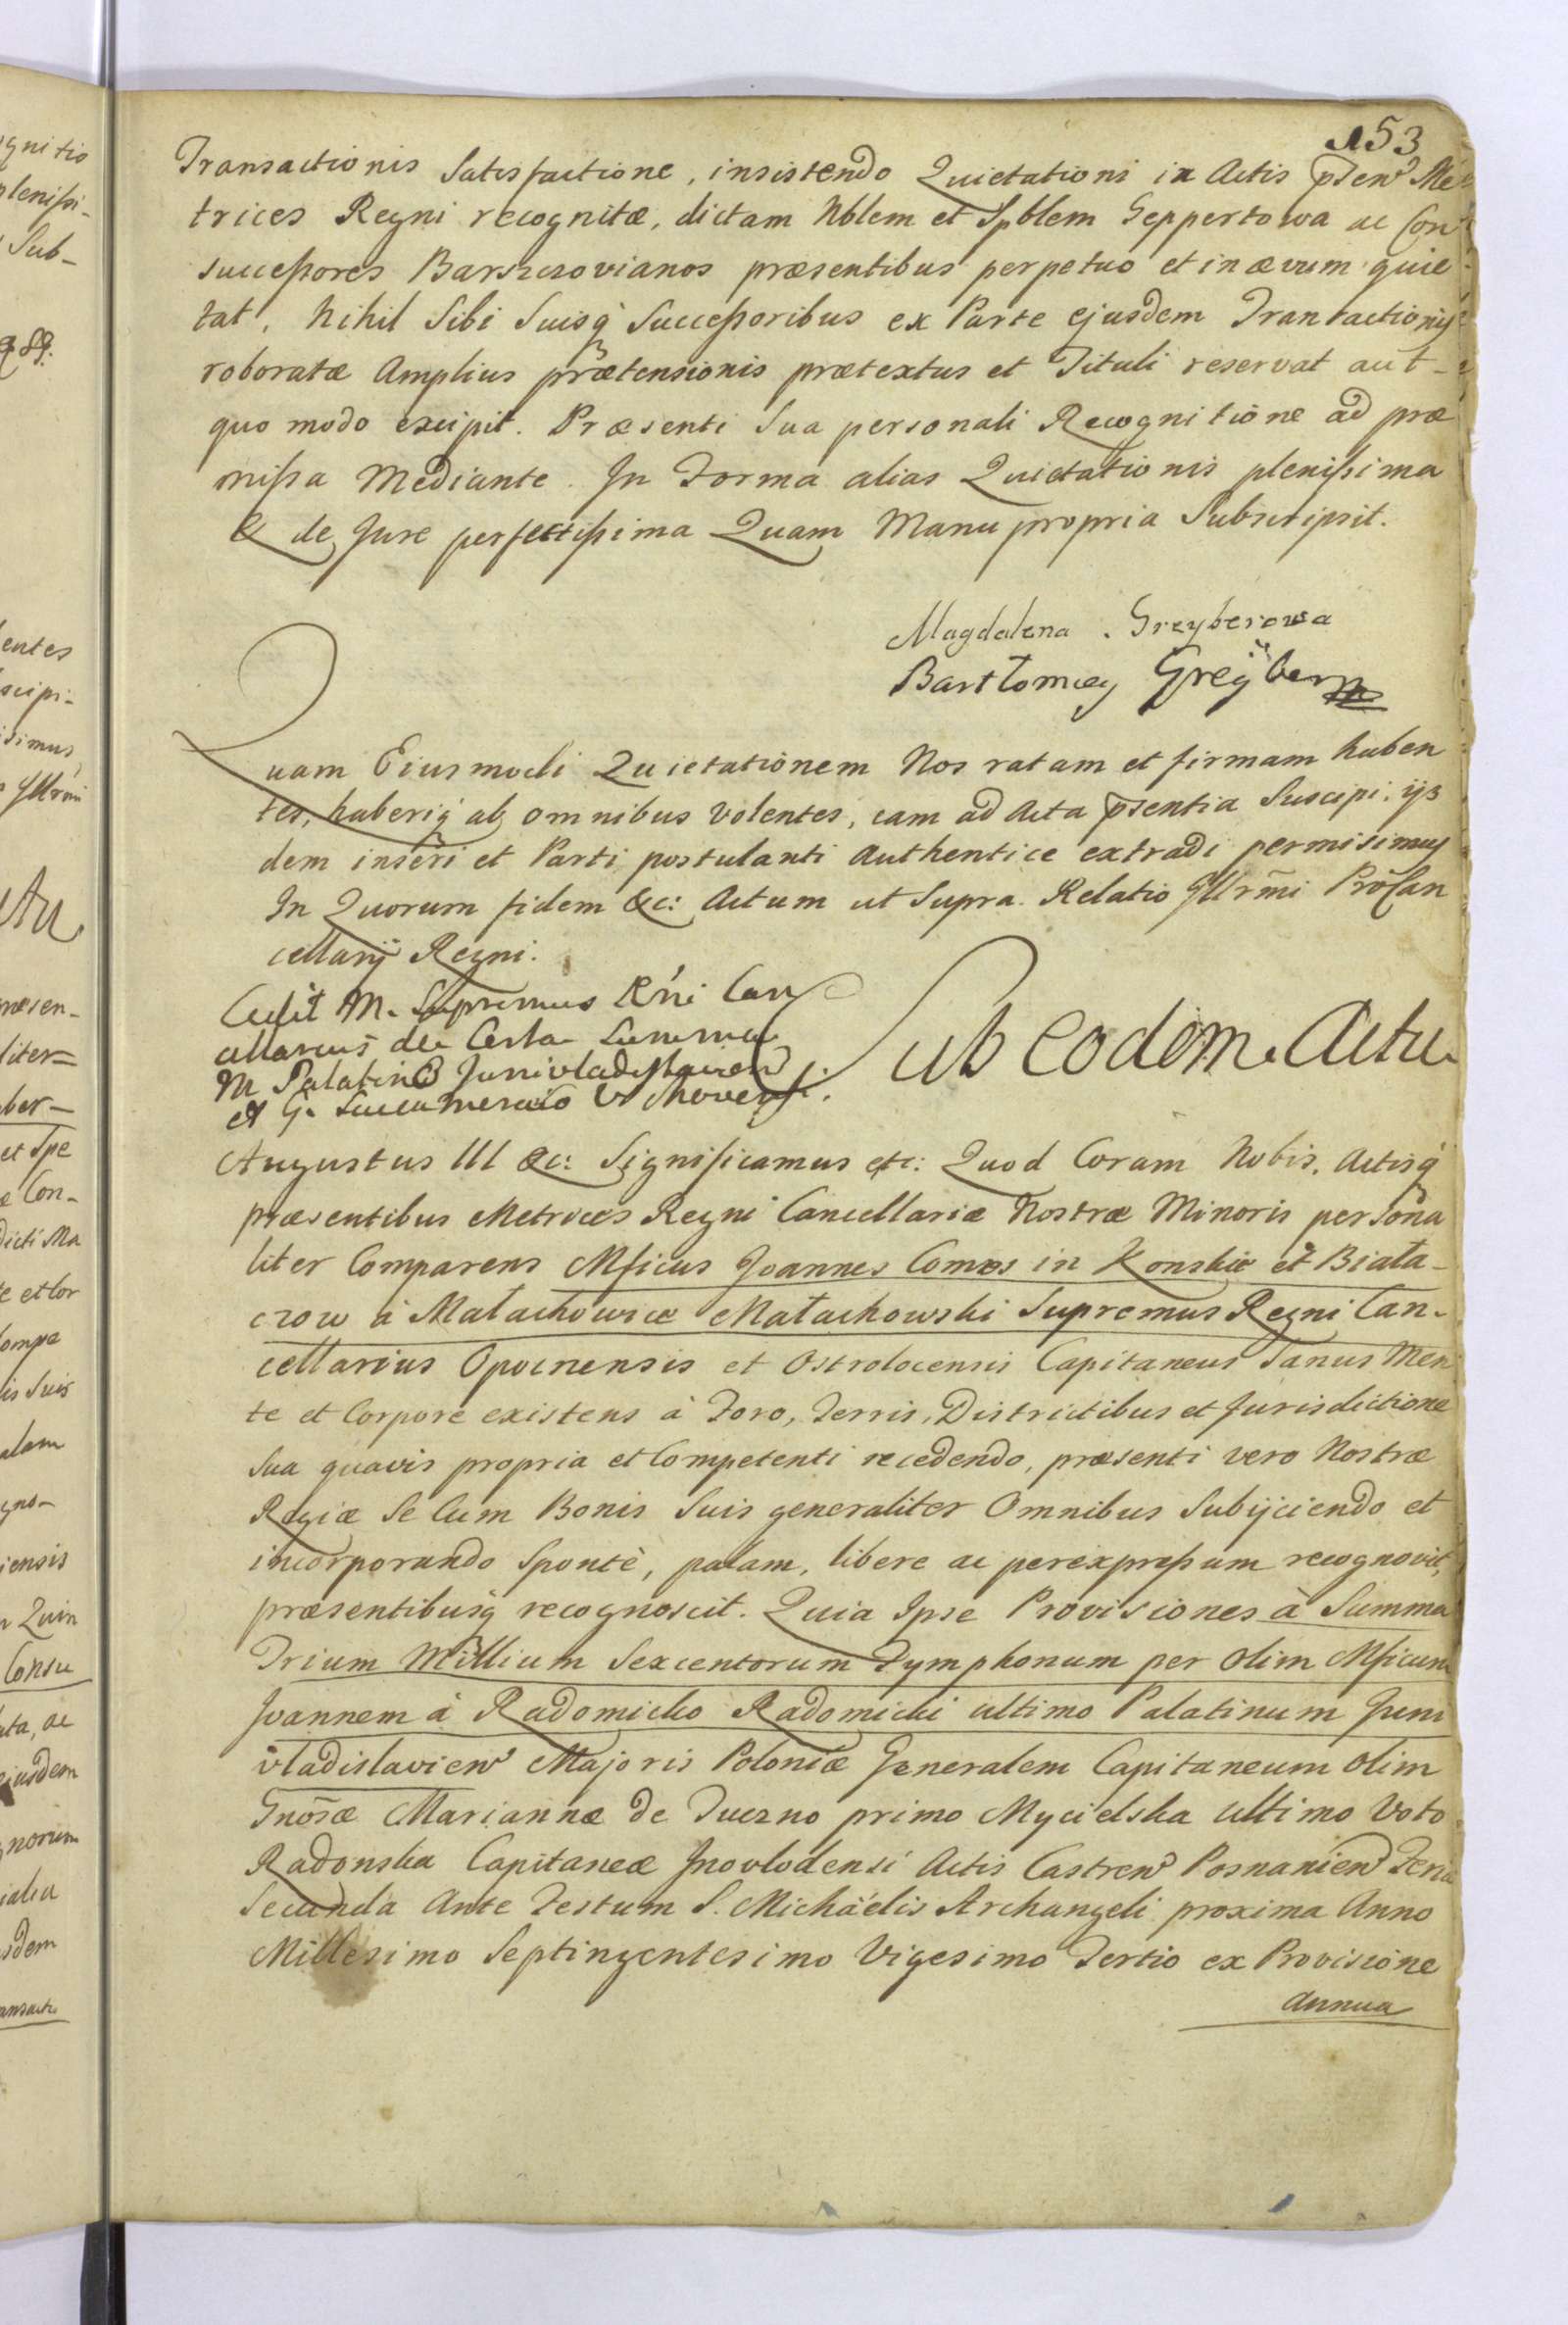 153
Transactionis Satisfactione, insistendo Quietationi in Actis pñsen Me
trices Regni recognitæ, dictam Nblem et Spblem Geppertowa ac Con
successores Barszczovianos præsentibus perpetuo et in ævum quie
tat, Nihil Sibi Suisq Successoribus ex Parte ejusdem Trantactionis
roboratæ Amplius prætensionis prætextus et Tituli reservat aut
quo modo excipit. Præsenti Sua personali Recognitione ad præ
missa Mediante. In Forma alias Quietationis plenissima
& de Jure perfectissima Quam Manu propria Subscripsit.
Magdalena . Greyberowa
Bartłomiey Greÿber
Quam Eiusmodi Quietationem Nos ratam et firmam haben
tes, haberiq ab omnibus Volentes, eam ad Acta pñsentia Suscipi, ijs
dem inseri et Parti postulanti Authentice extradi permisimus
In Quorum fidem &c: Actum ut Supra. Relatio Illrmi ProCan
cellarij Regni.
Cedit M. Supremus Rni Can
cellarius de Certa Summa
M Palatino Junivladislavien
et G. Succamerario
Sub eodem Actu
Augustus III &c: Significamus etc: Quod Coram Nobis, Actisq
præsentibus Metrices Regni Cancellariæ Nostræ Minoris persona
liter Comparens Mficus Joannes Comes in Konskie et Biała-
czow à Małachowice Małachowski Supremus Regni Can-
cellarius Opocnensis et Ostrolocensis Capitaneus Sanus Men
te et Corpore existens à Foro, Terris, Districtibus et Jurisdictione
Sua quavis propria et Competenti recedendo, præsenti vero Nostræ
Regiæ Se Cum Bonis Suis generaliter Omnibus Subijciendo et
incorporando Spontè, palam, libere ac perexpressum recognovit,
præsentibusq recognoscit. Quia Ipse Provisiones à Summa
Trium Millium Sexcentorum Tymphonum per olim Mficum
Joannem à Radomicko Radomicki ultimo Palatinum Juni
vladislavien Majoris Poloniæ Generalem Capitaneum olim
Gnosæ Mariannæ de Tuczno primo Mycielska ultimo Voto
Radonska Capitaneæ Inovlodensi Actis Castren Posnanien Feria
Secunda Ante Festum S. Michäelis Archangeli proxima Anno
Millesimo Septingentesimo Vigesimo Tertio ex Provisione
annua